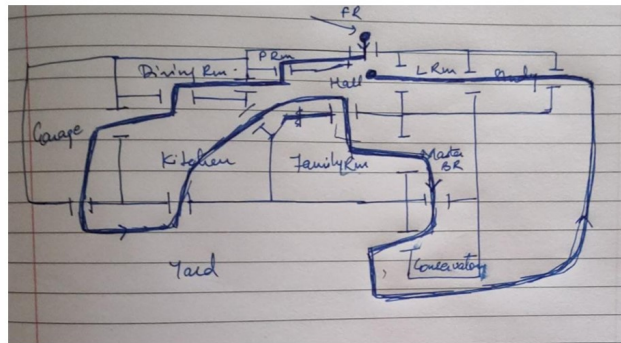 FR
P Rm
Dining Rm.
Hall
L Rm
Study
Garage
Kitchen
Family Rm
Master
BR
Yard
Conservatory